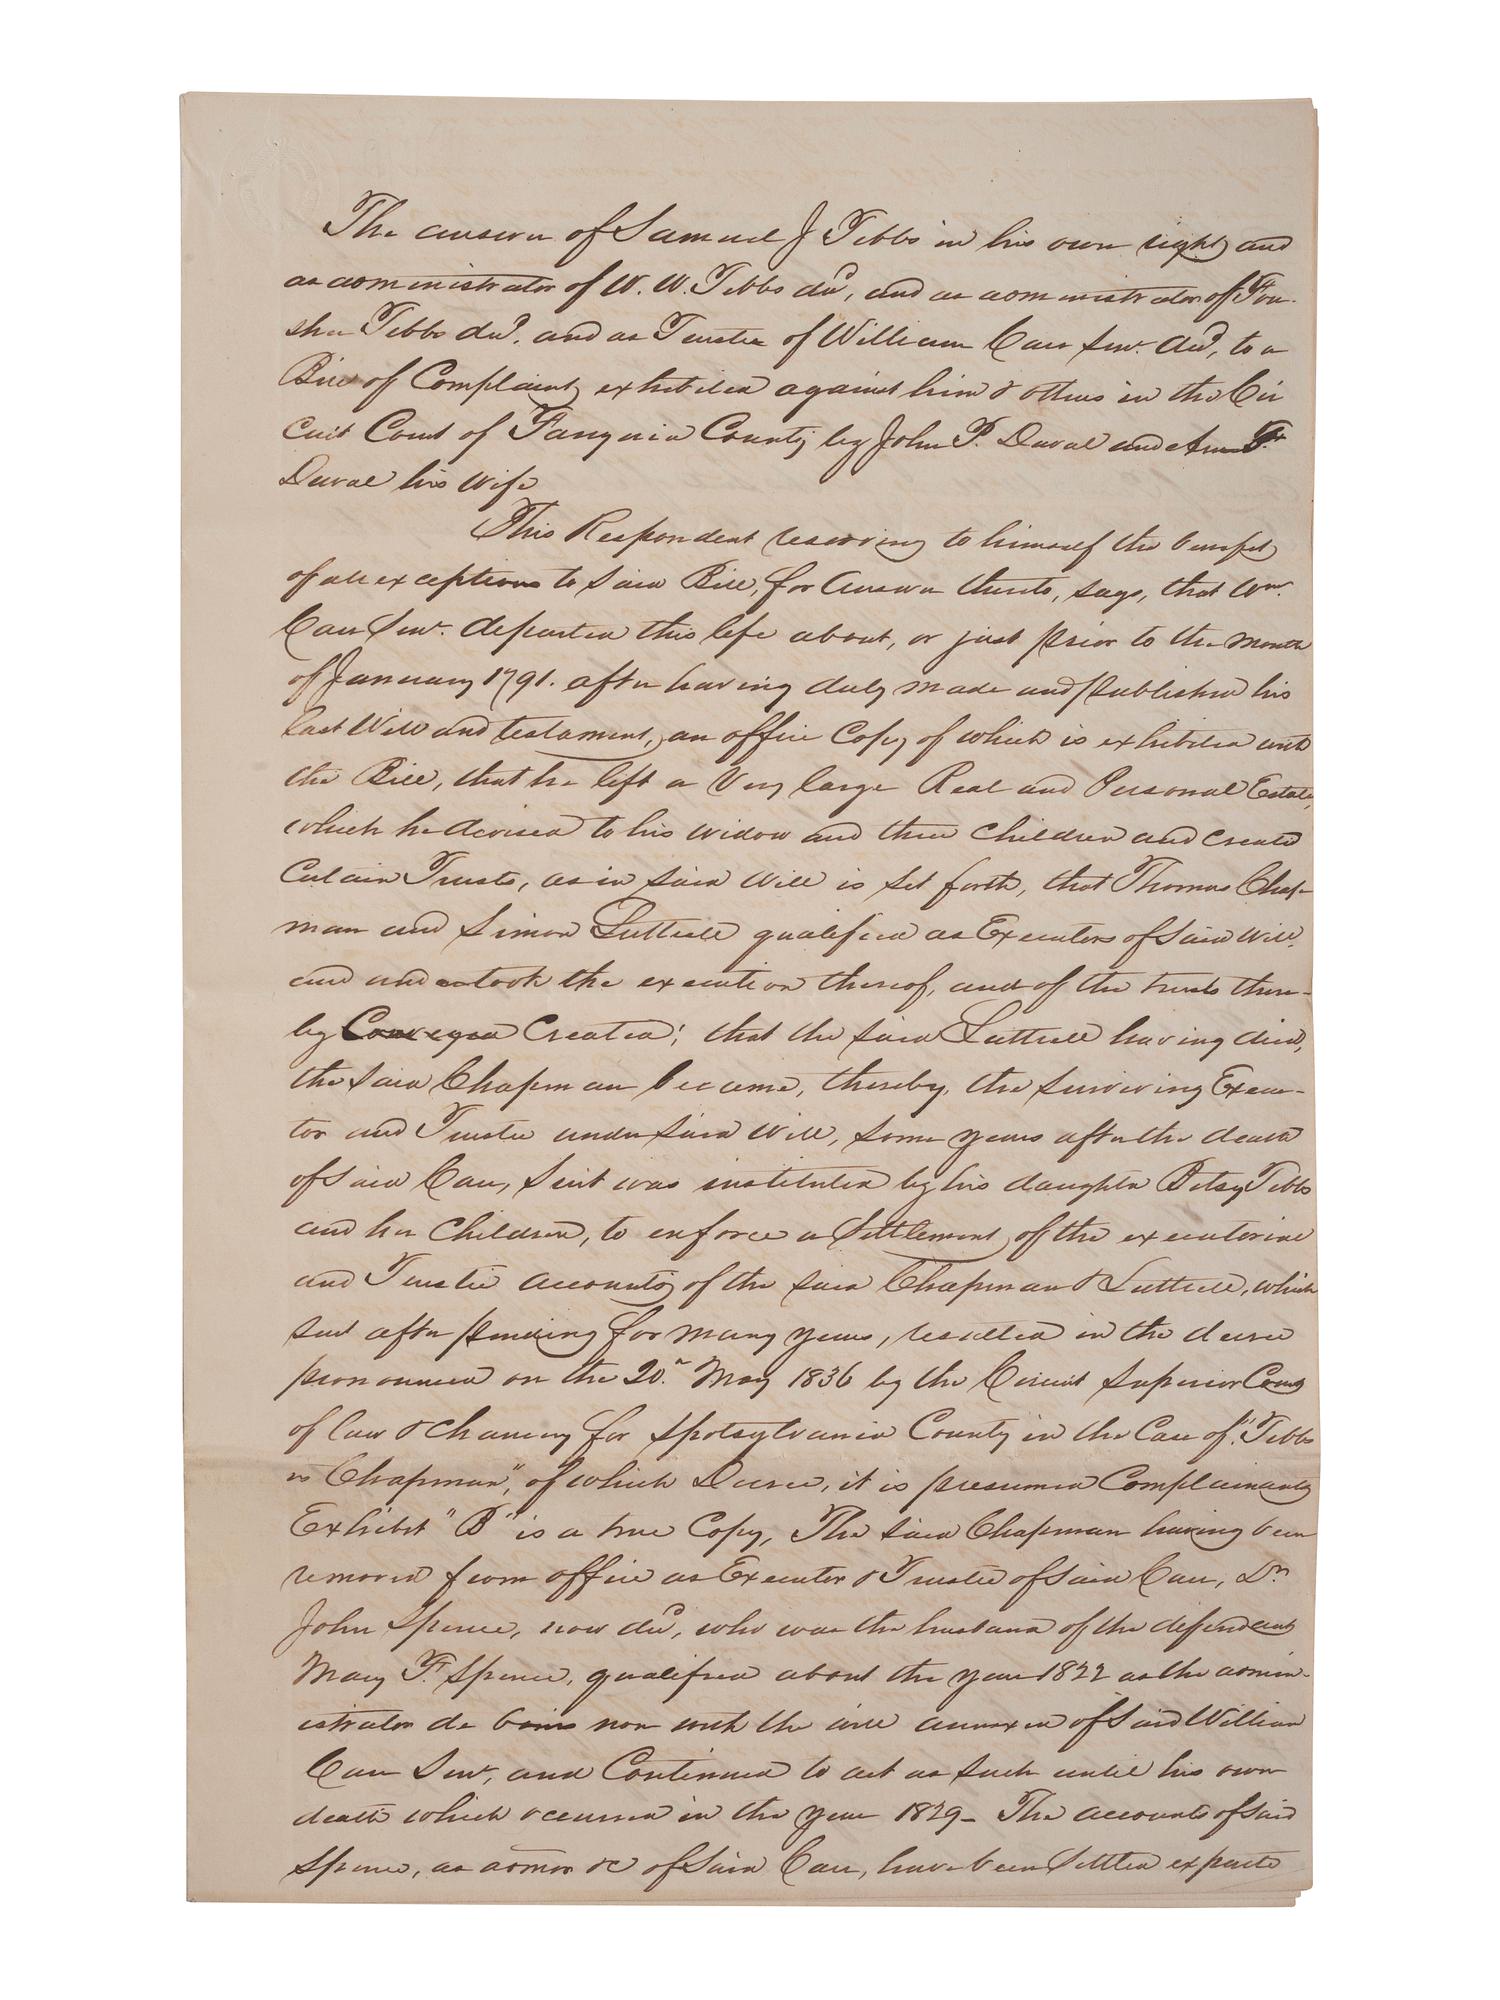 The answer of Samuel J Tebbs in his own right and
as administrator of W. W. Tebbs decd, and as administrator of Fou-
shee Tebbs decd. and as Trustee of William Carr Senr. decd, to a
Bill of Complaint exhibited against him & others in the Cir
cuit Court of Fauquier County by John P. Duval and Ann F.
Duval his wife
This Respondent reserving to himself the benefit
of all exceptions to said Bill, for answer thereto, says, that Wm.
Carr Senr. departed this life about, or just prior to the month
of January 1791. after having duly made and published his
last Will and testament, an office Copy of which is exhibited with
the Bill, that he left a Very large Real and Personal Estate,
which he devised to his widow and three children and created
Certain Trusts, as in said Will is set forth, that Thomas Chap-
man and Simon Luttrell qualified as Executors of said Will,
and undertook the execution thereof, and of the trusts there-
by Conveyed Created; that the said Luttrell having died,
the said Chapman became, thereby, the surviving Execu-
tor and Trustee under said Will, some years after the death
of said Carr, Suit was instituted by his daughter Betsy Tebbs
and her Children, to enforce a Settlement of the executorial
and Trustee accounts of the said Chapman & Luttrell, which
suit after pending for many years, resulted in the decree
pronounced on the 20th May 1836 by the Circuit Superior Court
of law & chancery for Spotsylvania County in the Case of "Tebbs
vs Chapman", of which Decree, it is presumed Complainants
Exhibit "B" is a true Copy, The said Chapman having been
removed from office as Executor & Trustee of said Carr, Dr
John Spence, now decd, who was the husband of the defendant
Mary F. Spence, qualified about the year 1822 as the admin-
istrator de bonis non with the will annexed of said William
Carr Senr, and Continued to act as such until his own
death which occurred in the year 1829 - The accounts of said
Spence, as admor &c of said Carr, have been settled exparte